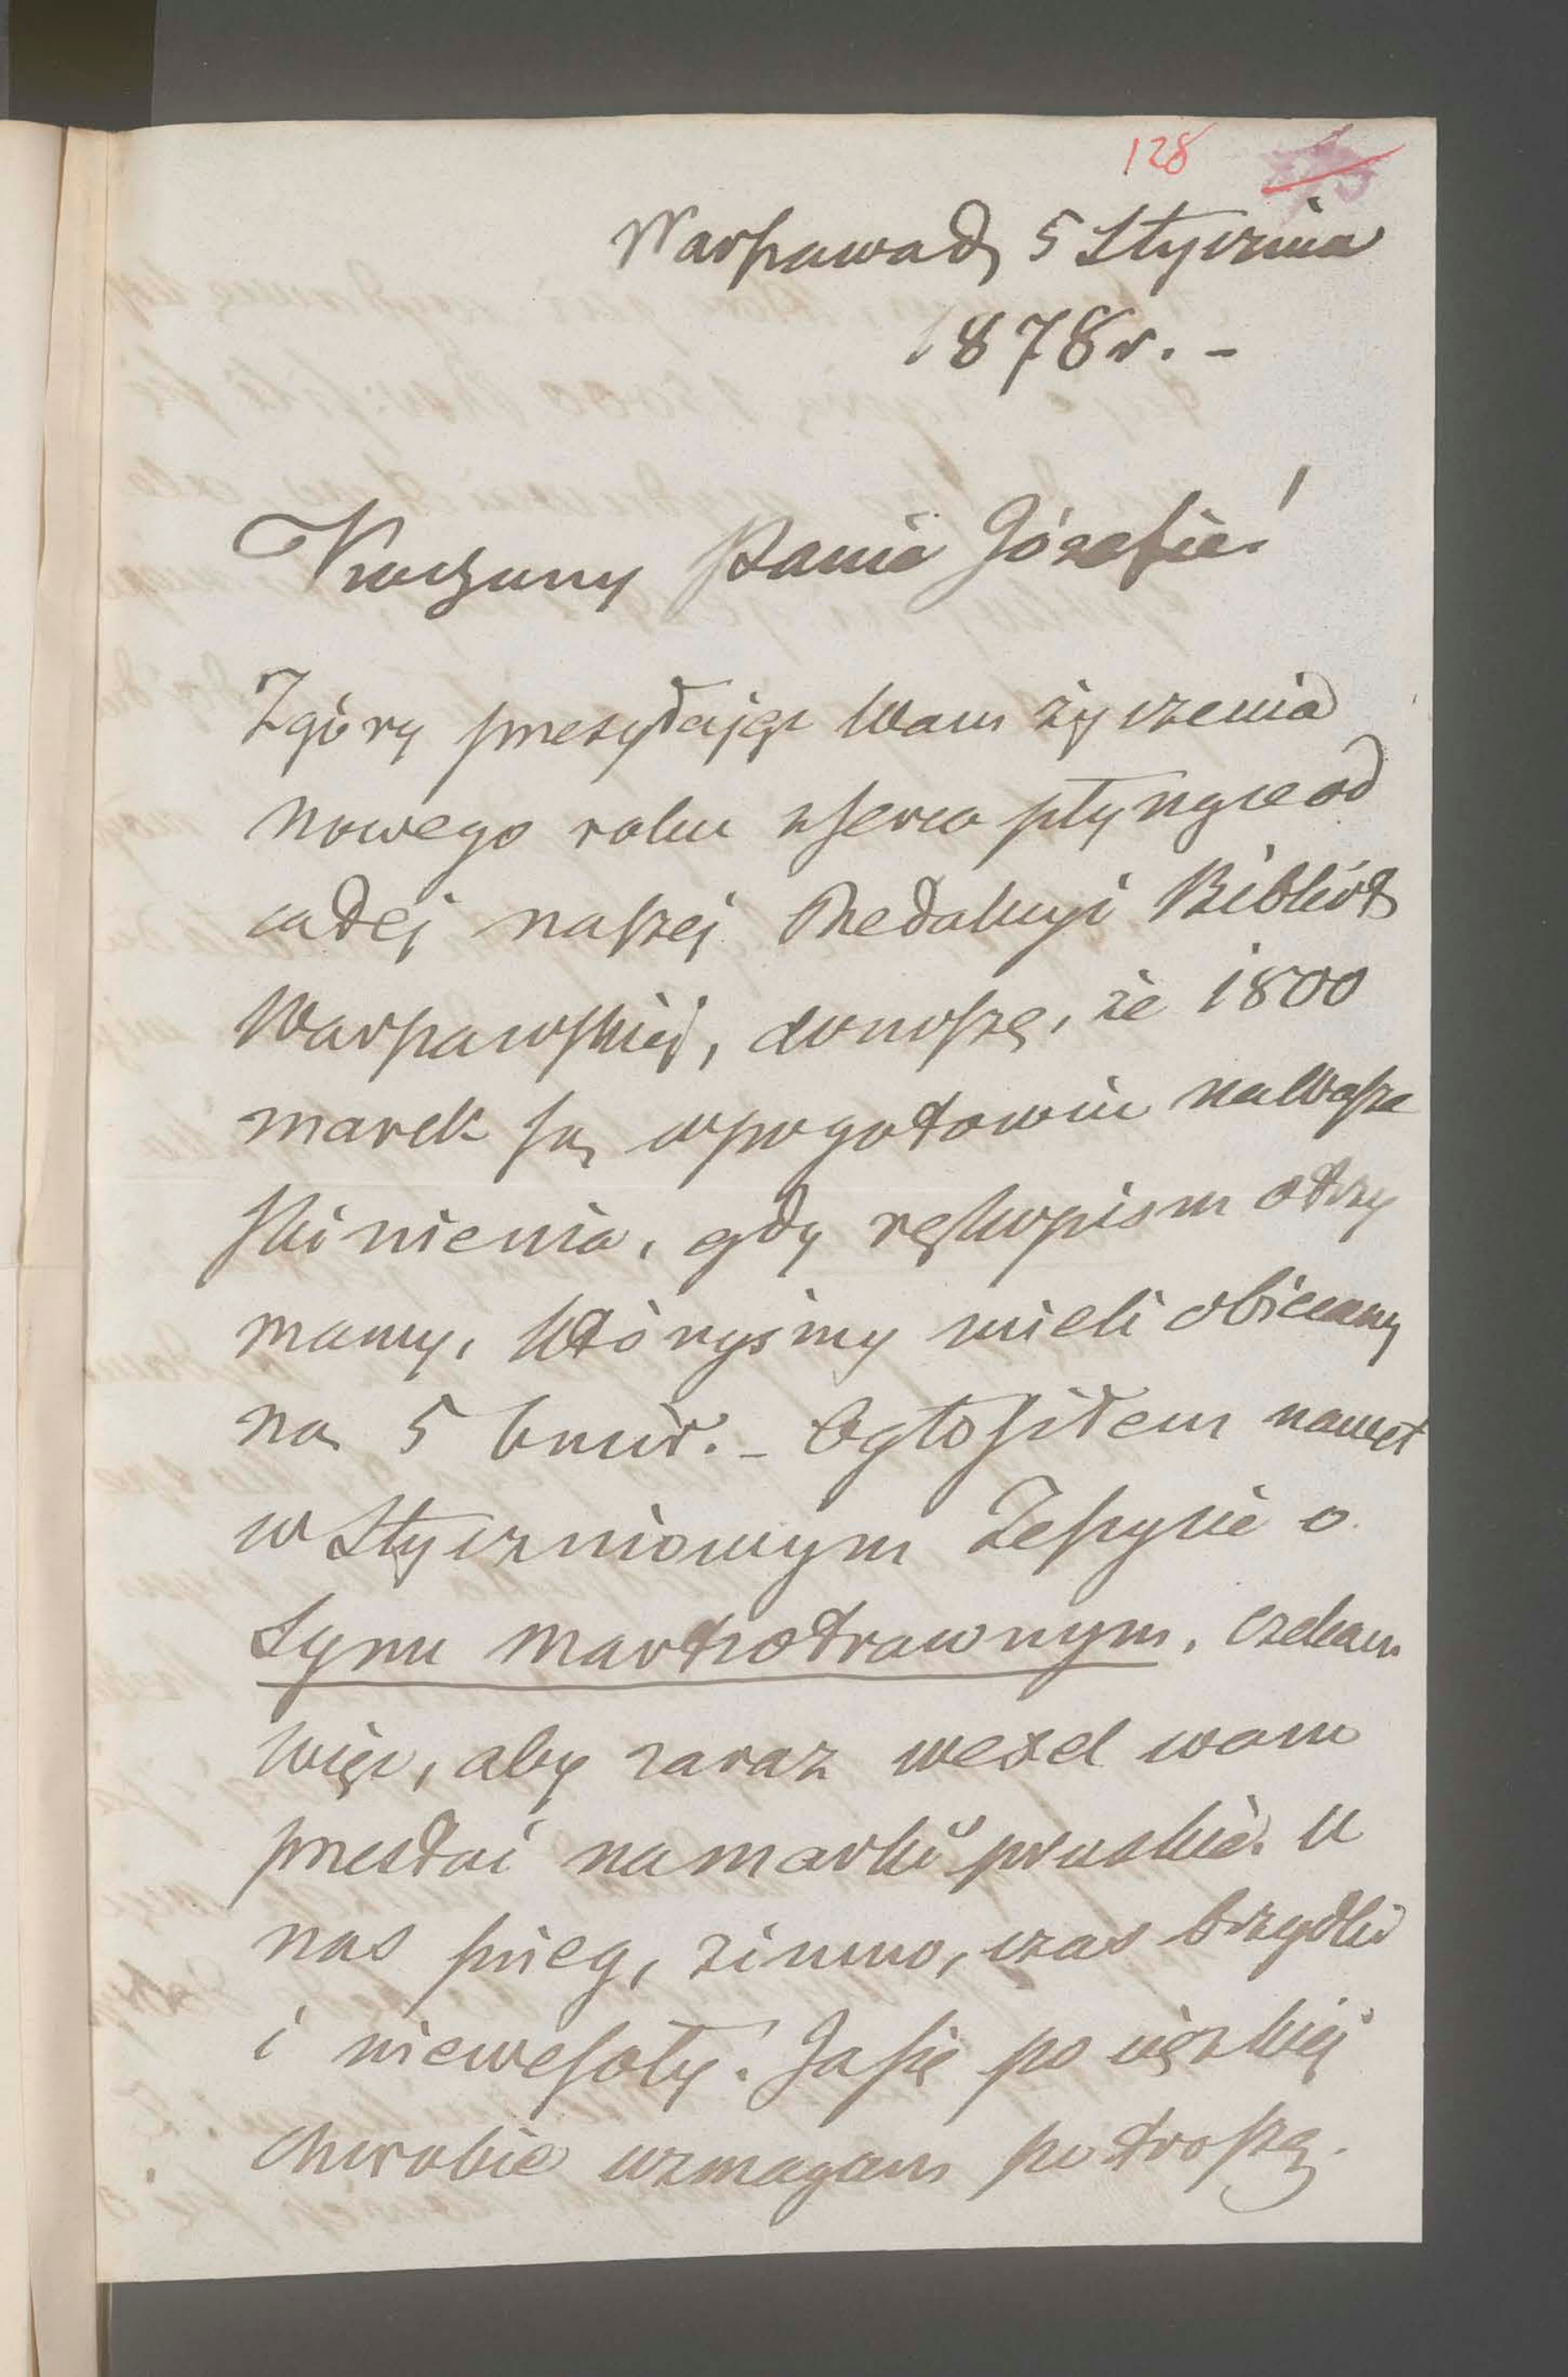 128
Warszawa d. 5 Stycznia
1878 r. -
Kochany Panie Józefie!
Zgóry przesyłając Wam życzenia
nowego roku z serca płynące od
całej naszej Redakcyi Bibliot.
Warszawskiéj, donoszę, że 1800
marek są w pogotowiu na Wasze
skinienia, gdy rękopism otrzy
mamy, któryśmy mieli obiecany
na 5 b. m i r. - Ogłosiłem nawet
w Styczniowym Zeszycie o
Synu marnotrawnym, czekam
więc, aby zaraz weksel wam
przesłać na marki pruskie. U
nas śnieg, zimno, czas brzydki
i niewesoły! Ja się po ciężkiéj
chorobie wzmagam po troszę.